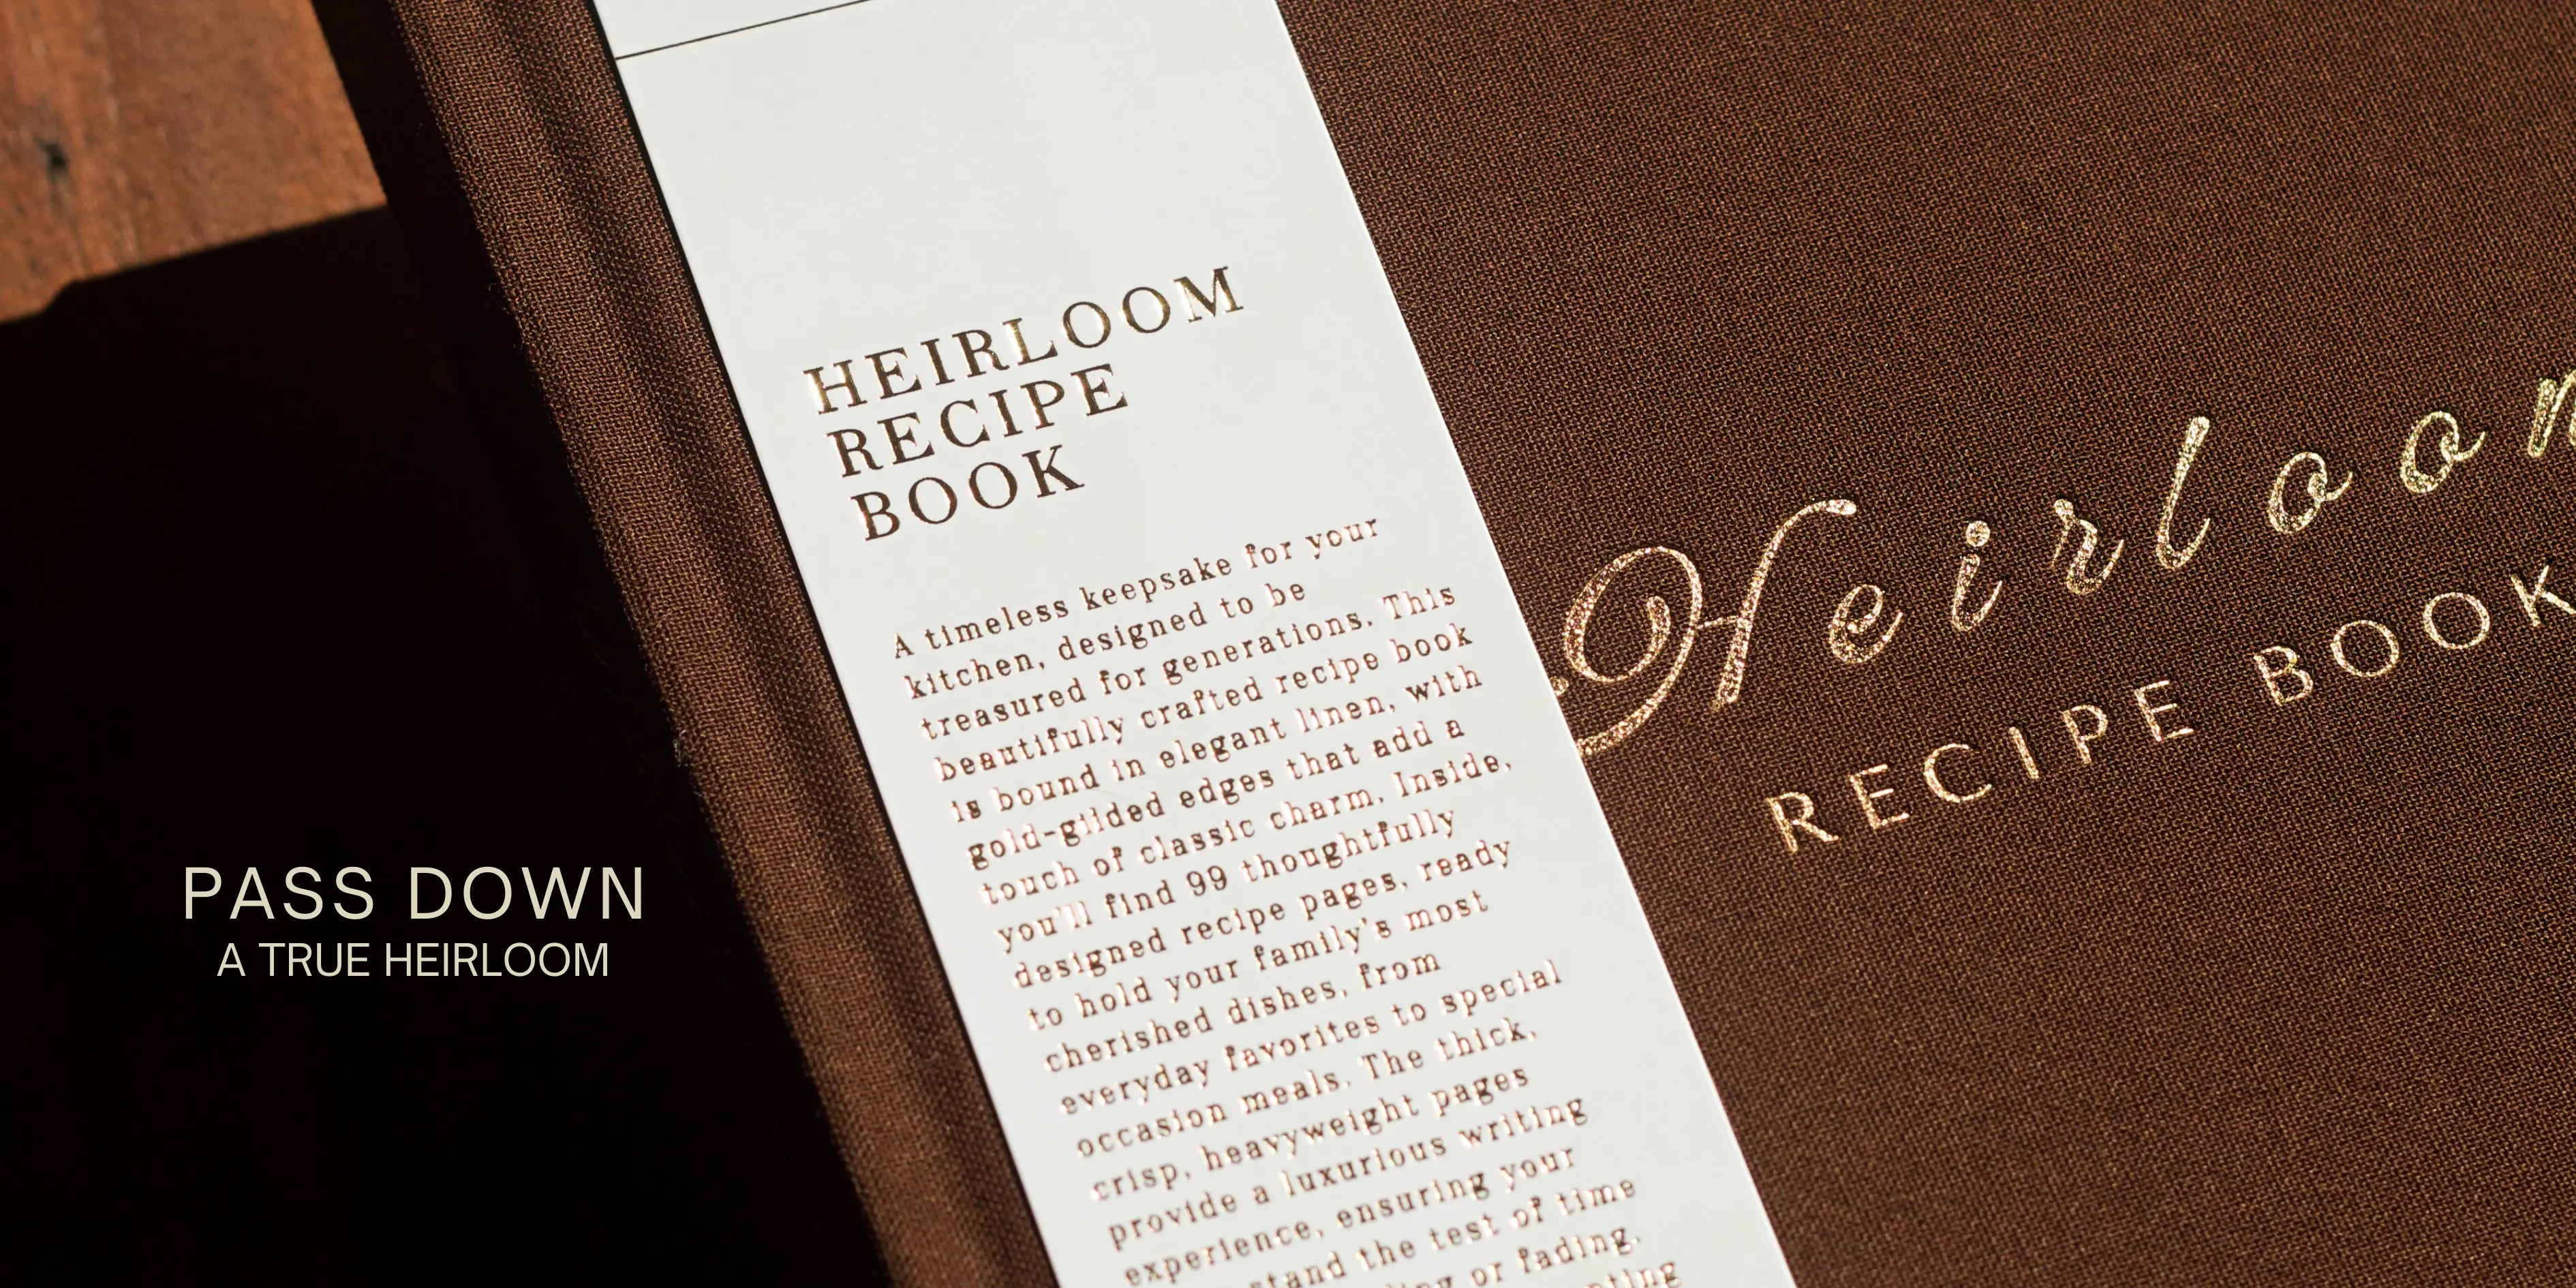 HEIRLOOM
RECIPE
BOOK
A timeless keepsake for your
kitchen, designed to be
treasured for generations. This
beautifully crafted recipe book
is bound in elegant linen, with
gold-gilded edges that add a
touch of classic charm. Inside,
you'll find 99 thoughtfully
designed recipe pages, ready
to hold your family's most
cherished dishes, from
everyday favorites to special
occasion meals. The thick,
crisp, heavyweight pages
provide a luxurious writing
experience, ensuring your
stand the test of time
or fading.
Heirloom
RECIPE BOOK
PASS DOWN
A TRUE HEIRLOOM